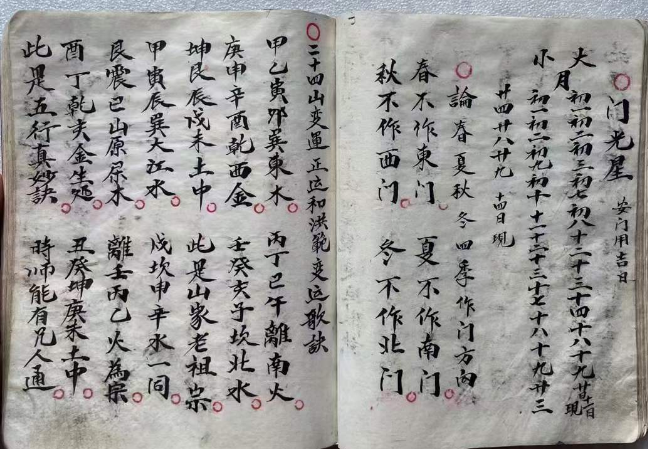 ○门光星 安门用吉日
大月 初一初二初三初七初八十二十三十四十八十九
小 初一初二初九初十十一十二十三十七十八十九廿三
廿四廿八廿九 十四日現
○論春夏秋冬四季作门方向
春不作東门 夏不作南门
秋不作西门 冬不作北门
○二十四山变運 正运和洪範变运歌訣
甲乙寅卯巽東木 丙丁巳午離南火
庚申辛酉乾西金 壬癸亥子坎北水
坤艮辰戌未土中 此是山家老祖宗
甲寅辰巽大江水 戌坎申辛水一同
艮震巳山原屬木 離壬丙乙火為宗
酉丁乾亥金生処 丑癸坤庚未土中
此是五行真妙訣 時师能有几人通